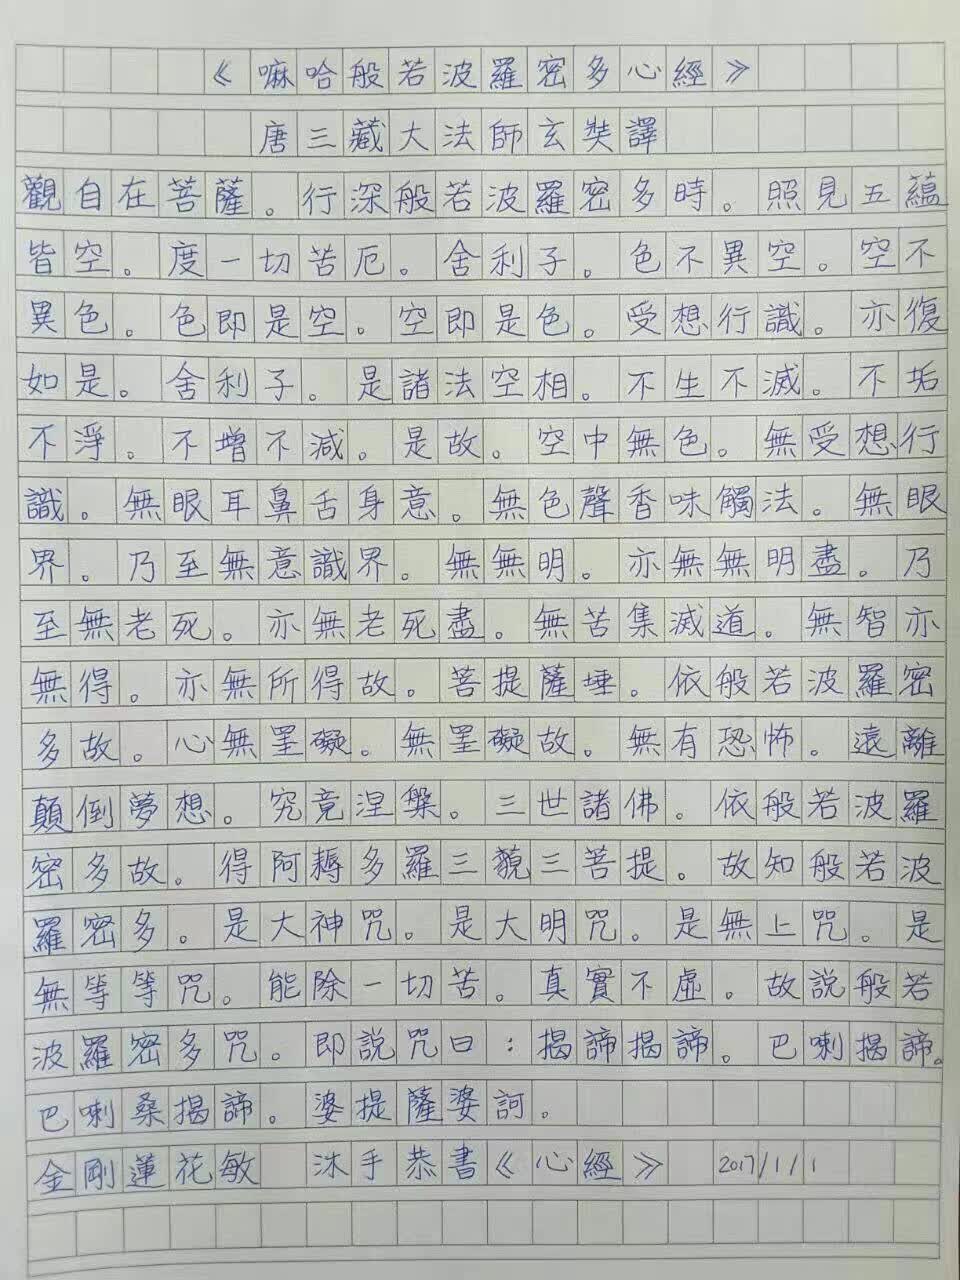 《嘛哈般若波羅密多心經》
唐三藏大法師玄奘譯
觀自在菩薩。行深般若波羅密多時。照見五蘊
皆空。度一切苦厄。舍利子。色不異空。空不
異色。色即是空。空即是色。受想行識。亦復
如是。舍利子。是諸法空相。不生不滅。不垢
不淨。不增不減。是故。空中無色。無受想行
識。無眼耳鼻舌身意。無色聲香味觸法。無眼
界。乃至無意識界。無無明。亦無無明盡。乃
至無老死。亦無老死盡。無苦集滅道。無智亦
無得。亦無所得故。菩提薩埵。依般若波羅密
多故。心無罣礙。無罣礙故。無有恐怖。遠離
顛倒夢想。究竟涅槃。三世諸佛。依般若波羅
密多故。得阿耨多羅三藐三菩提。故知般若波
羅密多。是大神咒。是大明咒。是無上咒。是
無等等咒。能除一切苦。真實不虛。故說般若
波羅密多咒。即說咒曰：揭諦揭諦。巴喇揭諦。
巴喇桑揭諦。婆提薩婆訶。
金剛蓮花敏 沐手恭書《心經》 2017/1/1